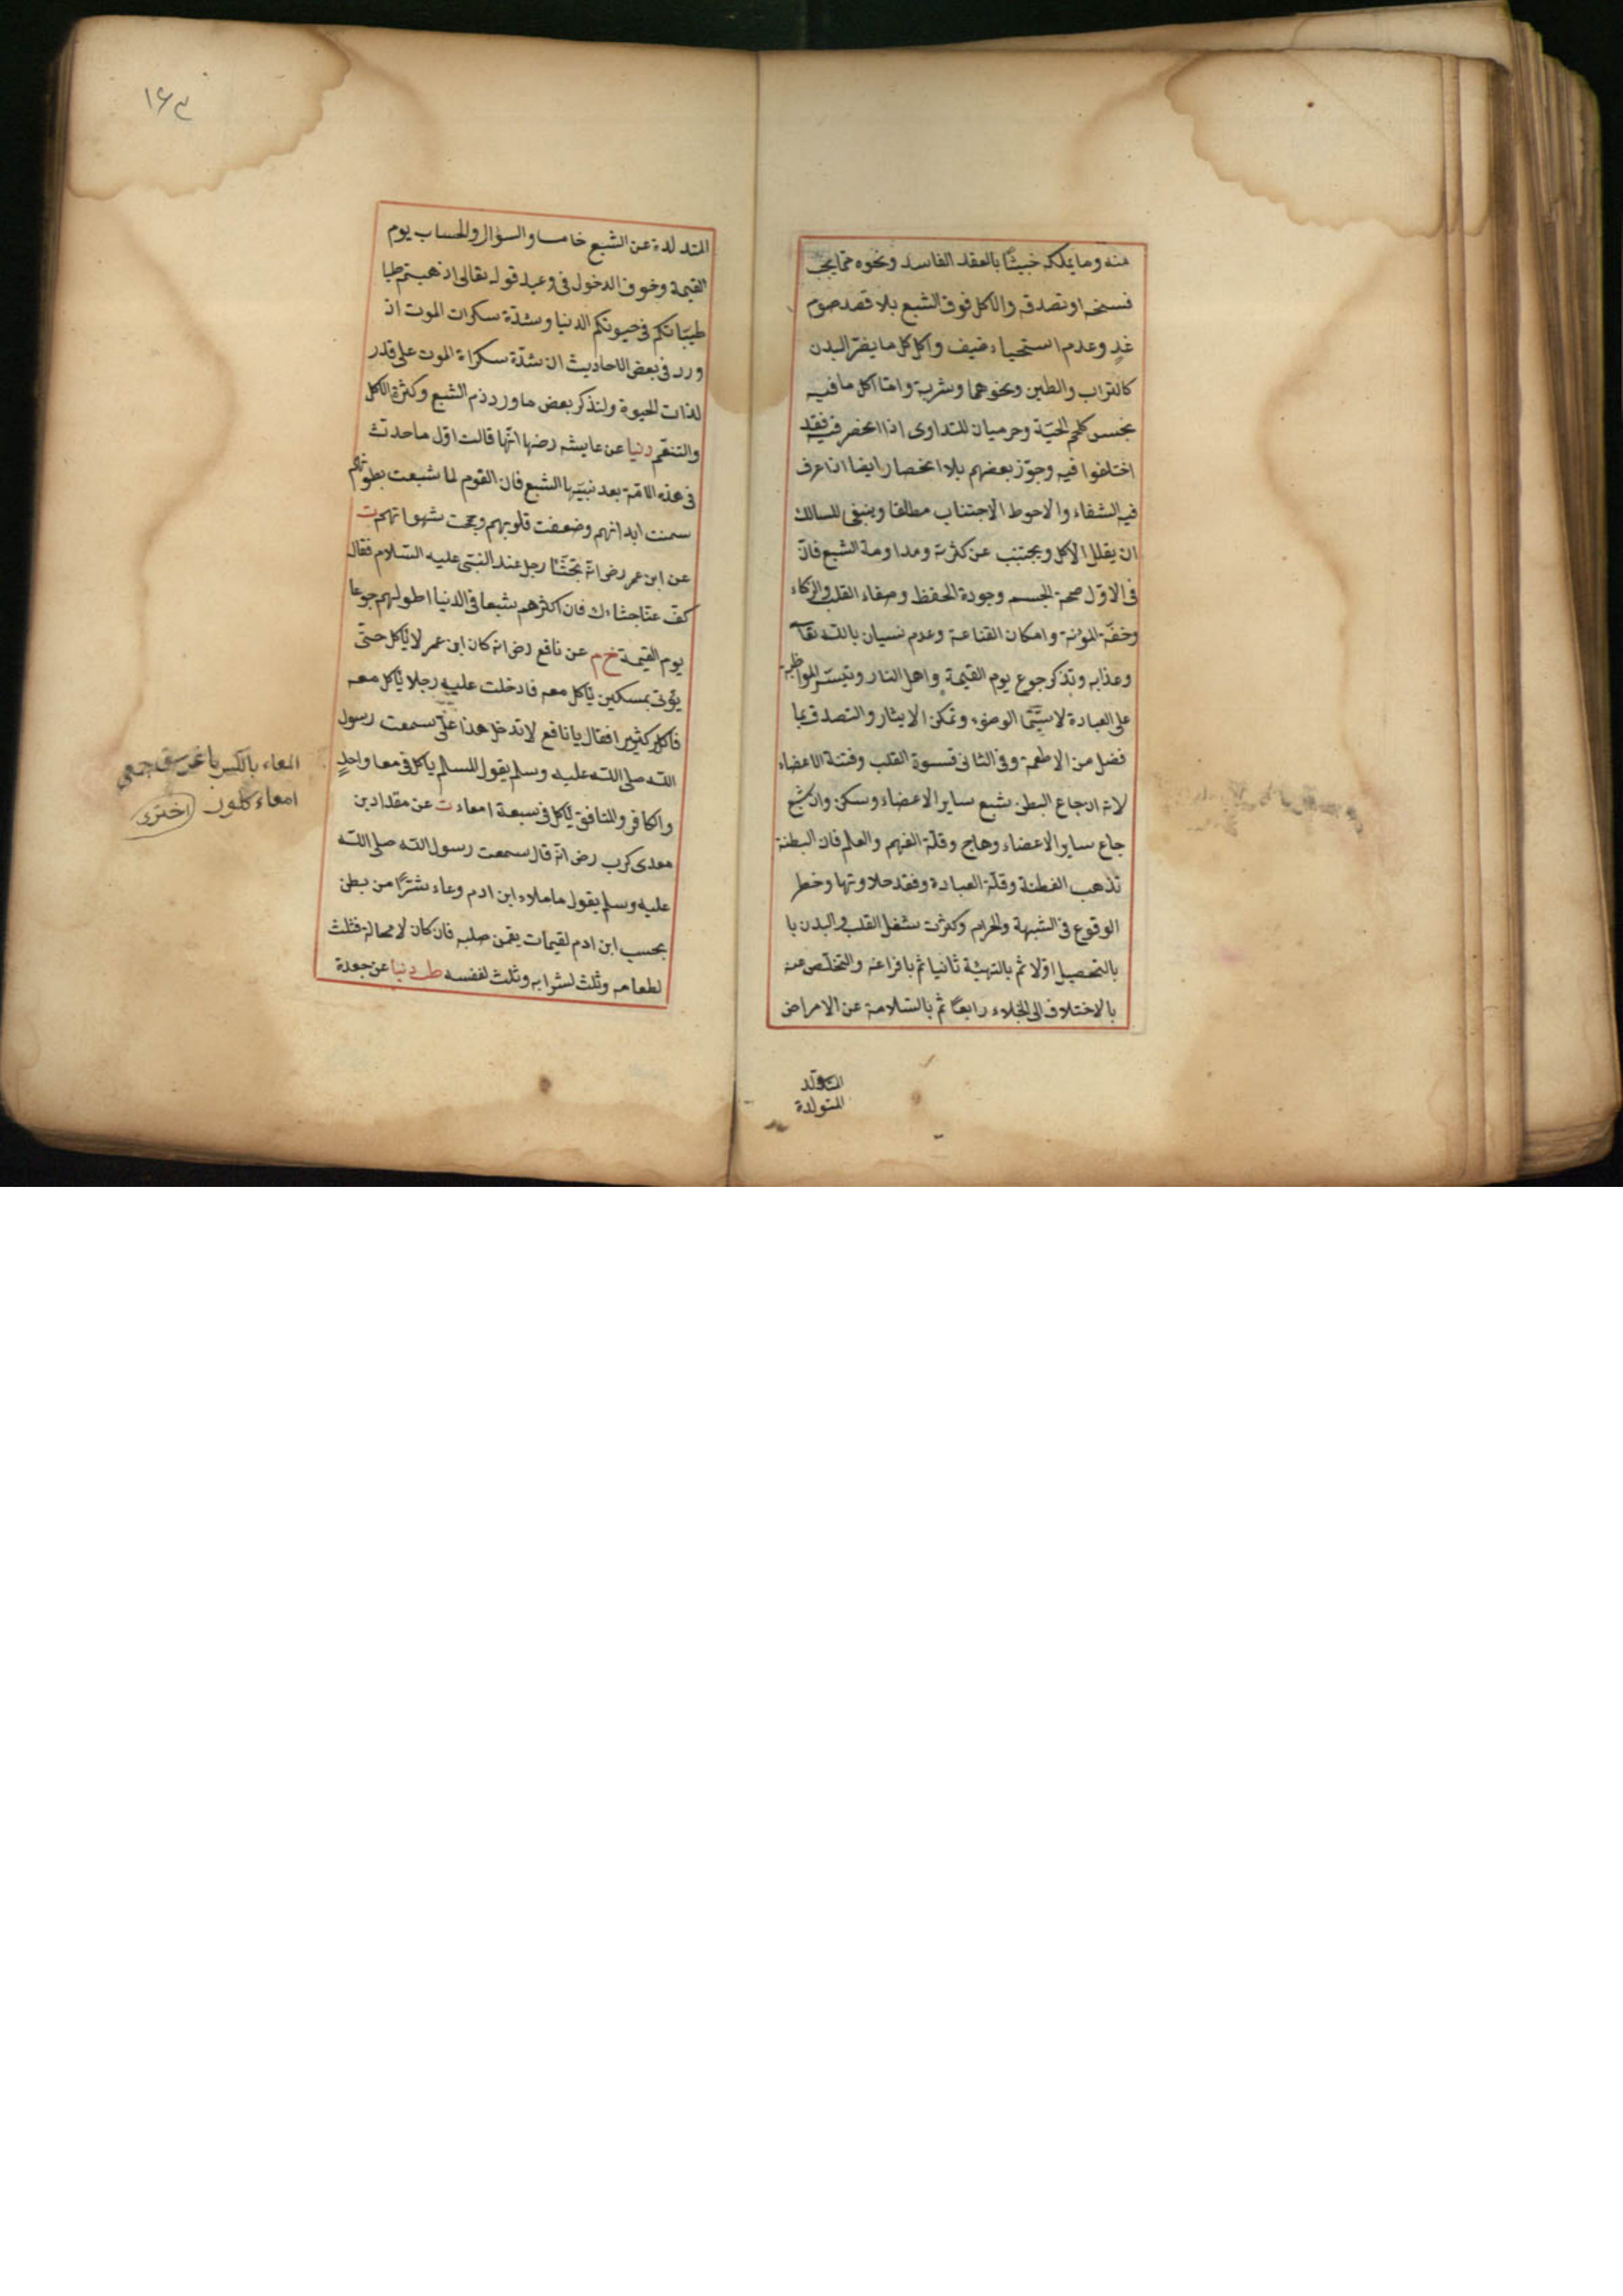 منه وما يملكه خبيثا بالعقد الفاسد ونحوه مما يجب
فسخه او تصدقه والاكل فوق الشبع بلا قصد صوم
غدٍ وعدم استحياء ضيف واكل كل ما يضر البدن
كالتراب والطين ونحوهما وشربه واما اكل ما فيه
نجس كلحم الحيّة وخر ميان للتداوى اذا انحصر فيه فقد
اختلفوا فيه وجوّز بعضهم بلا انحصار ايضا اذا عرف
فيه الشفاء والاحوط الاجتناب مطلقا وينبغى للسالك
ان يقلل الاكل ويجتنب عن كثرته ومداومة الشبع فانّ
فى الاوّل صحة الجسم وجودة الحفظ وصفاء القلب والزكاء
وخفّة المؤنة وامكان القناعة وعدم نسيان بالله تعا
وعذابه وتذكر جوع يوم القيمة واهل النار وتيسّر المواظبة
على العبادة لا سيّما الوضوء وتمكن الايثار والتصدق بما
فضل من الاطعمة وفى الثانى قسوة القلب وفتنة الاعضاء
لانه ان جاع البطن شبع ساير الاعضاء وسكن وان شبع
جاع ساير الاعضاء وهاج وقلّة الفهم والعلم فان البطنة
تذهب الفطنة وقلّة العبادة وفقد حلاوتها وخطر
الوقوع فى الشبهة والحرام وكثرت شغل القلب والبدن با
بالتحصيل اوّلا ثم بالتهيئة ثانيا ثم بافراغه والتخلّص عنه
بالاختلاف الى الخلاء رابعًا ثم بالسّلامة عن الامراض
المتولدة
المتد لدة عن الشبع خامسا والسؤال والحساب يوم
القيمة وخوف الدخول فى وعيد قوله تعالى اذهبتم طيا
طيّباتكم فى حيوتكم الدنيا وشدّة سكرات الموت اذ
ورد فى بعض الاحاديث ان شدّة سكراة الموت على قدر
لذات الحيوة ولنذكر بعض ما ورد ذم الشبع وكثرة الاكل
والتنعّم دنيا عن عايشه رضها انّها قالت اوّل ما حدث
فى هذه الامّة بعد نبيّها الشبع فان القوم لما شبعت بطونهم
سمنت ابدانهم وضعفت قلوبهم وجمحت شهواتهم ت
عن ابن عمر رض انه تجشّأ رجل عند النبى عليه السّلام فقال
كفّ عنّا جشاءك فان اكثرهم شبعا فى الدنيا اطولهم جوعا
يوم القيمة خ م عن نافع رض انه كان ابن عمر لا ياكل حتّى
يؤتى بمسكين ياكل معه فادخلت عليه رجلا ياكل معه
فاكل كثيرا فقال يا نافع لا تدخل هذا علىّ سمعت رسول
الله صلى الله عليه وسلم يقول المسلم ياكل فى معا واحدٍ
والكافر والمنافق ياكل فى سبعة امعاء ت عن مقداد بن
معدى كرب رض انه قال سمعت رسول الله صلى الله
عليه وسلم يقول ما ملاء ابن ادم وعاء شرًّا من بطن
بحسب ابن ادم لقيمات يقمن صلبه فان كان لا محالة فثلث
لطعامه وثلث لشرابه وثلث لنفسه ط دنيا عن جعدة
المعاء بالكسر باغرسق جمعى
امعاء كلور اخترى
١٦٣